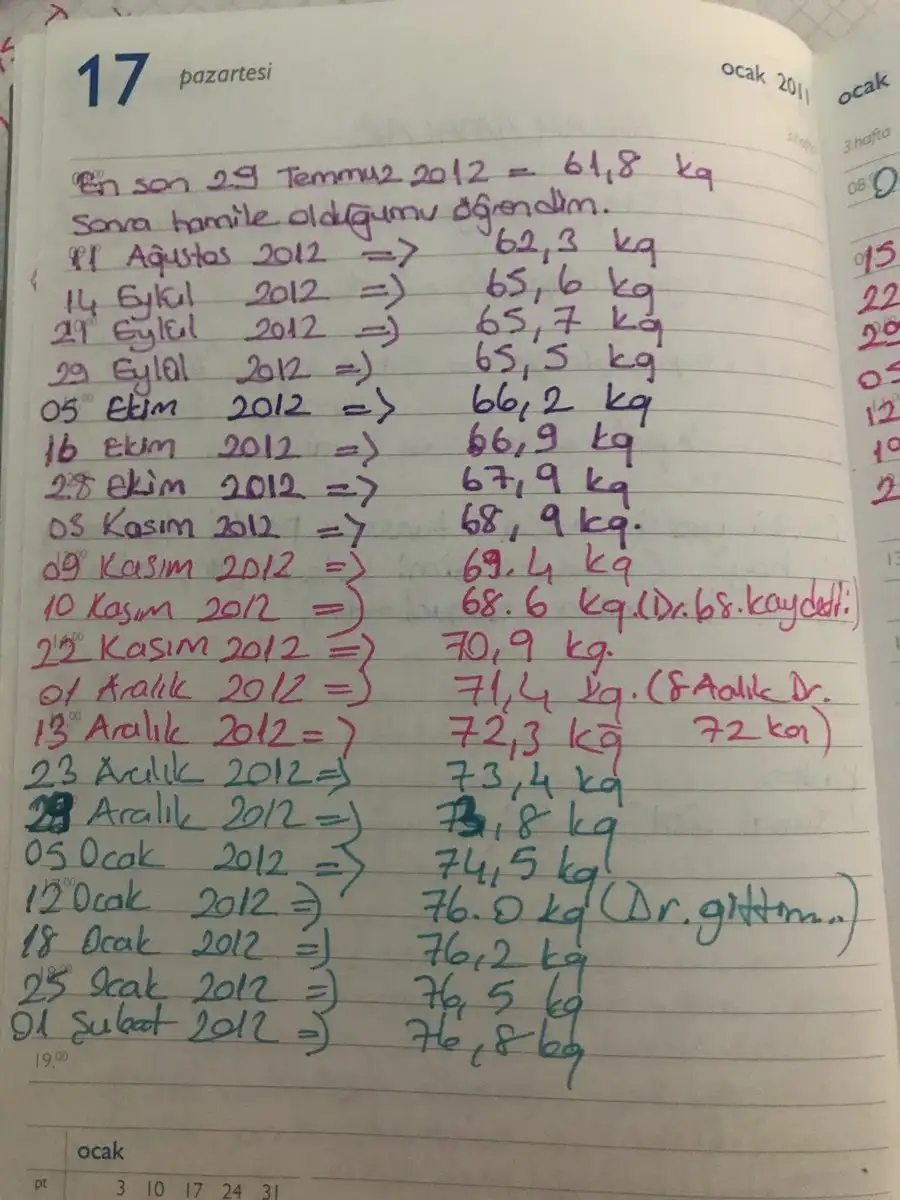 17 pazartesi ocak 2011 ocak
3.hafta
En son 29 Temmuz 2012 = 61,8 kg
Sonra hamile olduğumu öğrendim.
11 Ağustos 2012 => 62,3 kg
14 Eylül 2012 => 65,6 kg
Eylül 2012 => 65,7 kg
29 Eylül 2012 => 65,5 kg
05 Ekim 2012 => 66,2 kg
16 Ekim 2012 => 66,9 kg
28 Ekim 2012 => 67,9 kg
03 Kasım 2012 => 68,9 kg.
09 Kasım 2012 => 69.4 kg
10 Kasım 2012 => 68.6 kg.(Dr.68.kaydetti)
22 Kasım 2012 => 70,9 kg.
01 Aralık 2012 => 71,4 kg. (8 Aalık Dr.
13 Aralık 2012 => 72,3 kg 72 kg)
23 Aralık 2012 => 73,4 kg
29 Aralık 2012 => 73,8 kg
05 Ocak 2012 => 74,5 kg
12 Ocak 2012 => 76.0 kg (Dr.gittim...)
18 Ocak 2012 => 76,2 kg
25 Ocak 2012 => 76,5 kg
01 Şubat 2012 => 76,8 kg
19.00
ocak
pt 3 10 17 24 31
15
22
29
05
12
19
2